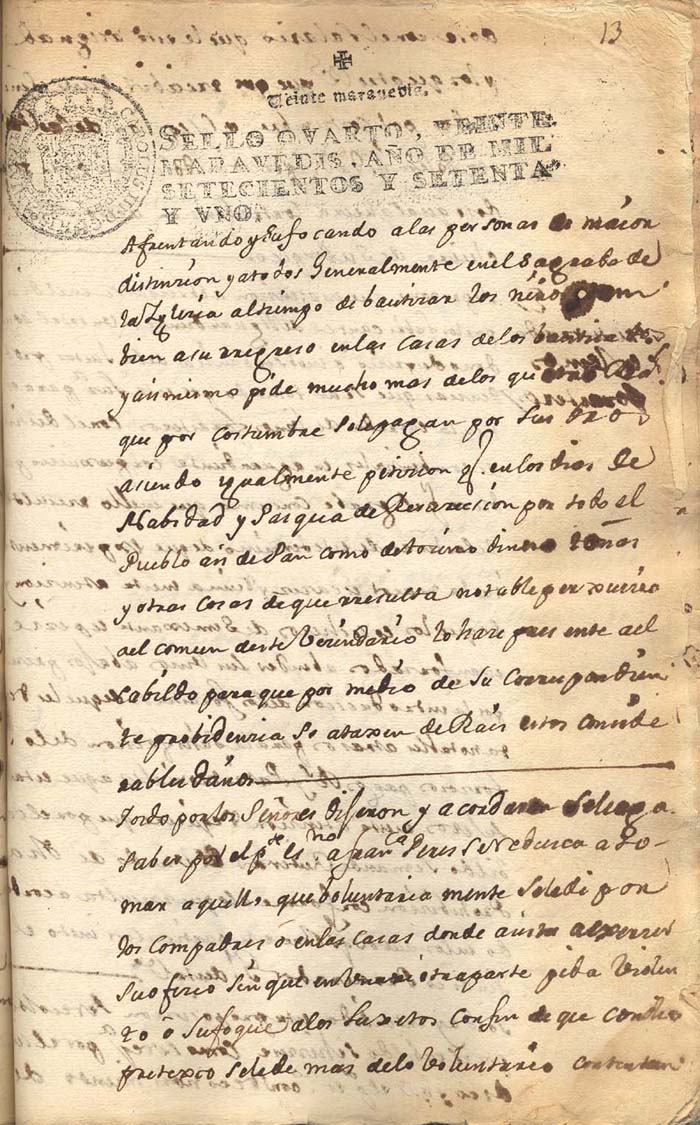 13
Veinte maravedis.
SELLO QVARTO, VEINTE
MARAVEDIS, AÑO DE MIL
SETECIENTOS Y SETENTA
Y VNO.
Afrentando y sufocando alas personas de maior
distinzion yatodos Generalmente enel Sagrado de
la Yglesia altiempo de bautizar los niños tam
bien asu rregreso enlas Casas delos bautizados
y asi mismo pide mucho mas delos quatro
que por Costumbre sele pagan por sus dros
asiendo ygualmente petizion en los dias de
Nabidad y Pasqua de Resurección por todo el
Pueblo asi de Pan como de tosino dinero
y otras Cosas de que rresulta notable perxuicio
ael comun deste Vecindario lo hase presente ael
Cabildo para que por medio de su Correspondien
te probidencia se ataxen de Rais estos Conside
rables daños
Todo por los Señores dijeron y acordaron sele aga
saber por el pte. esno. a Franca. Peres se Redusca a to-
mar aquello que boluntaria mente sele dé por
los Compadres ó enlas Casas donde asista a exerser
su ofisio sin que en una ni otra parte pida Violen
to ó sufoque alos Suxetos Confin de que Con
pretexto sele dé mas delo Voluntario